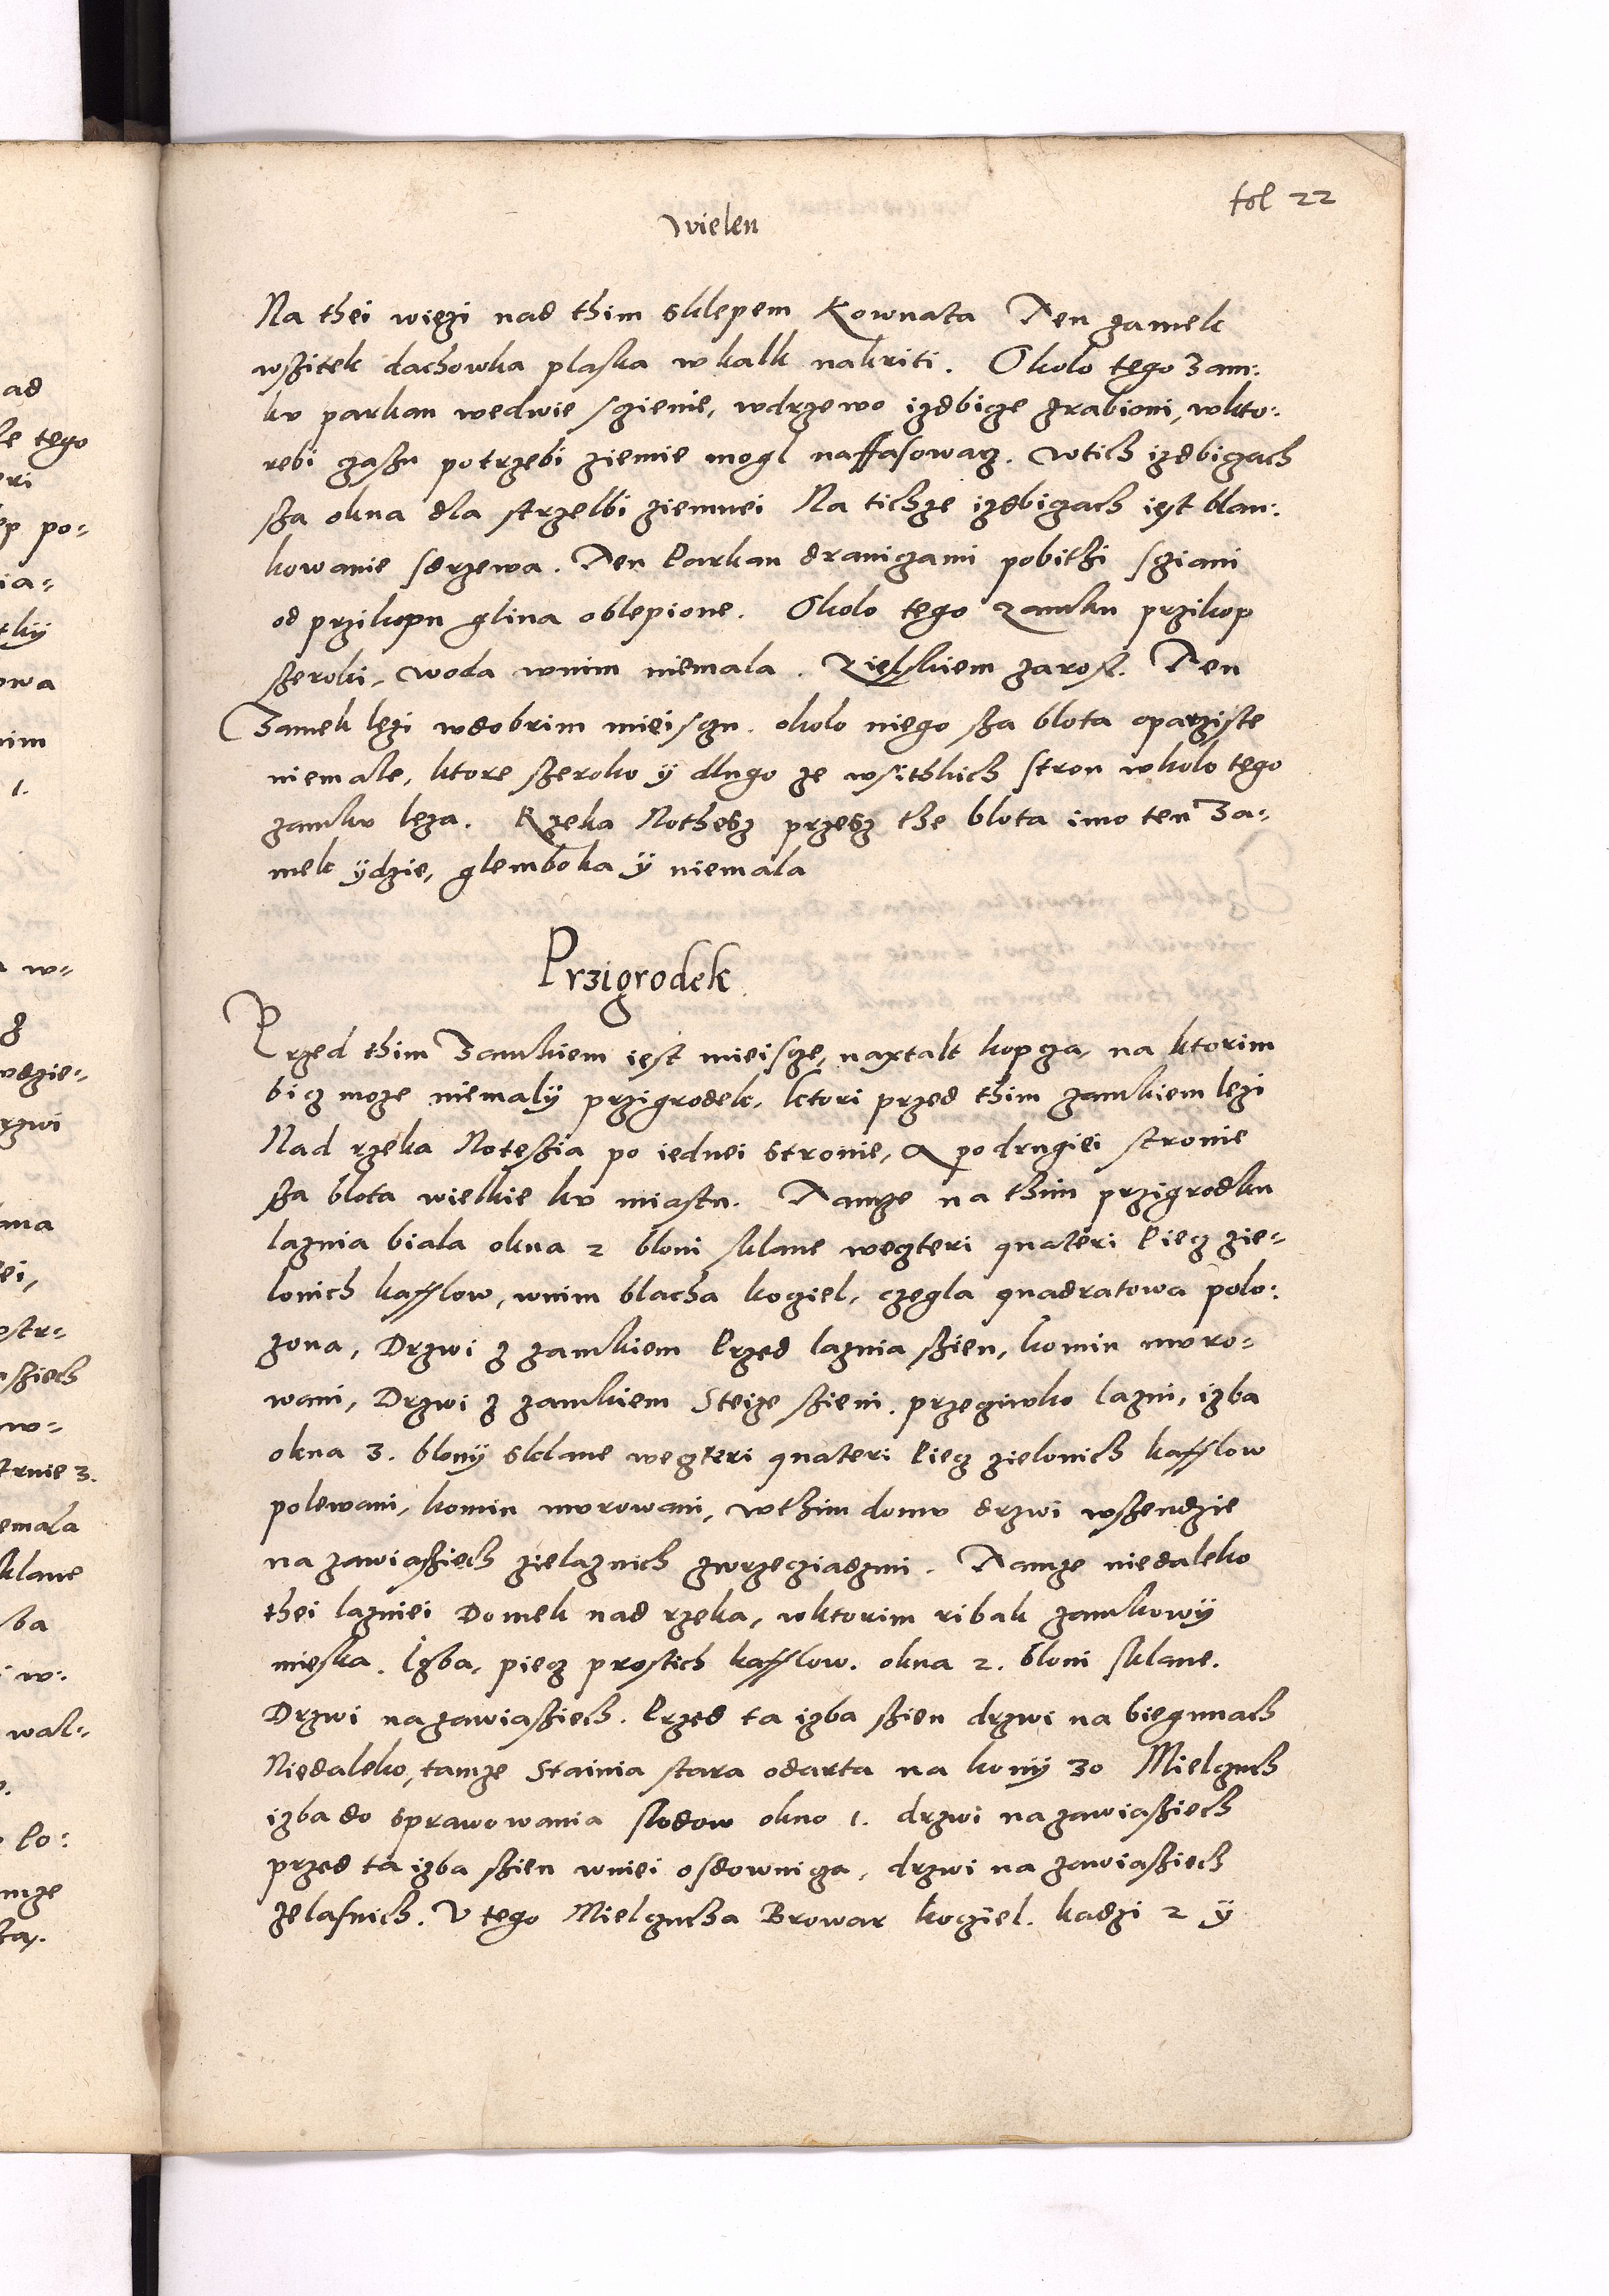 fol 22
Wielen
Na thei wiezi nad thim sklepem Kownata Ten zamek
wszitek dachowka plaska w kalk nakriti. Okolo tego Zam:
ku parkan wedwie sczienie, wdrzewo izdbicze zrabioni, wkto:
rebi czaszu potrzebi ziemie mogl naffasowacz. wtich izdbiczach
sza okna dla strzelbi ziemnei Na tichze izdbiczach iest blan:
kowanie sdrzewa. Ten Parkan draniczami pobithi sciani
od przikopu glina oblepione. Okolo tego Zamku przikop
szeroki, woda wnim niemala. Zielskiem zarosl. Ten
Zamek lezi wdobrim mieisczu. okolo niego sza blota oparziste
niemale, ktore szeroko ÿ dlugo ze wsithkich stron wkolo tego
zamku leza. Rzeka Nothesz przesz the blota imo ten Za-
mek ÿdzie, glemboka ÿ niemala
Przigrodek
Przed thim Zamkiem iest mieiscze, naxtalt kopcza, na ktorim
bicz moze niemalÿ przigrodek, ktori przed thim zamkiem lezi
Nad rzeka Noteszia po iednei stronie, a po drugiei stronie
sza blota wielkie ku miastu. Tamze na thim przigrodku
laznia biala okna 2 bloni sklane wczteri quateri Piecz zie-
lonich kafflow, wnim blacha kocziel, czegla quadratowa polo:
zona, Drzwi z zamkiem Przed laznia szien, komin muro-
wani, Drzwi z zamkiem Steize szieni. przeciwko lazni, izba
okna 3. blonÿ sklane wczteri quateri Piecz zielonich kafflow
polewani, komin murowani, wthim domu drzwi wszendzie
na zawiasziech zielaznich zwrzecziadzmi. Tamze niedaleko
thei lazniei Domek nad rzeka, wktorim ribak zamkowÿ
mieska. Izba, piecz prostich kafflow. okna 2. bloni sklane.
Drzwi na zawiasziech. Przed ta izba szien drzwi na biegunach
Niedaleko, tamze Stainia stara odarta na konÿ 30 Mielczuch
izba do sprawowania slodow okno 1. drzwi na zawiasziech
przed ta izba szien wniei osdownicza, drzwi na zawiasziech
zelasnich. V tego Mielczucha Browar kocziel. kadzi 2 ÿ